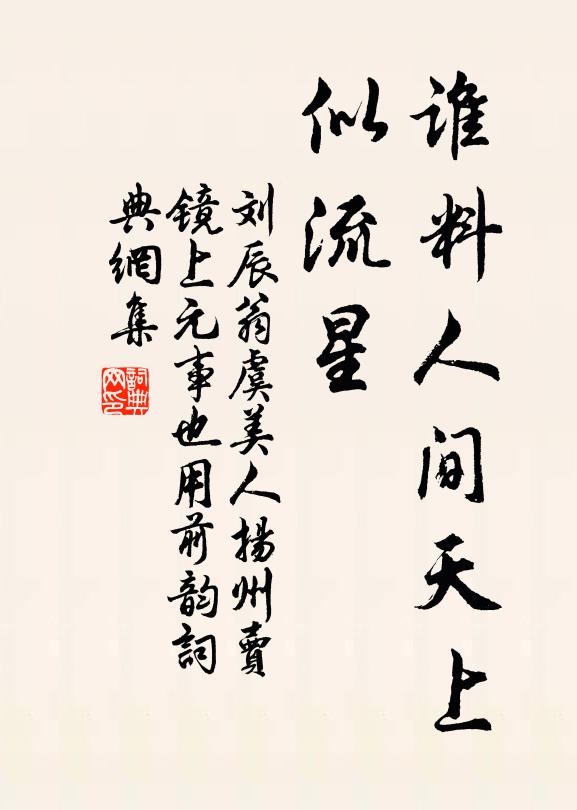 谁料人间天上
似流星
刘辰翁虞美人揚州賣
镜上元事也用前韵詞
典網集
詞典
网印